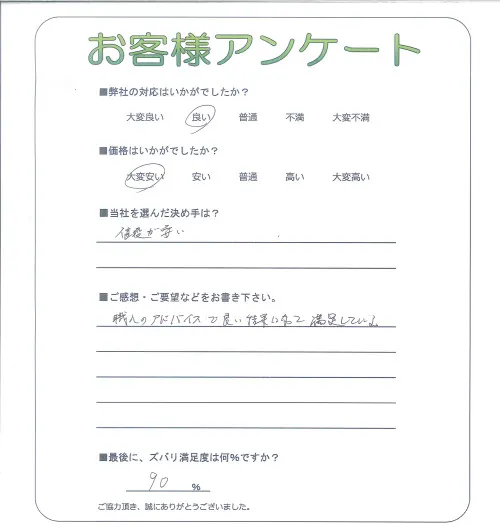 お客様アンケート
■弊社の対応はいかがでしたか?
大変良い 良い 普通 不満 大変不満
■価格はいかがでしたか?
大変安い 安い 普通 高い 大変高い
■当社を選んだ決め手は?
値段が安い
■ご感想・ご要望などをお書き下さい。
職人のアドバイスで良い結果になって満足している。
■最後に、ズバリ満足度は何%ですか?
90 %
ご協力頂き、誠にありがとうございました。